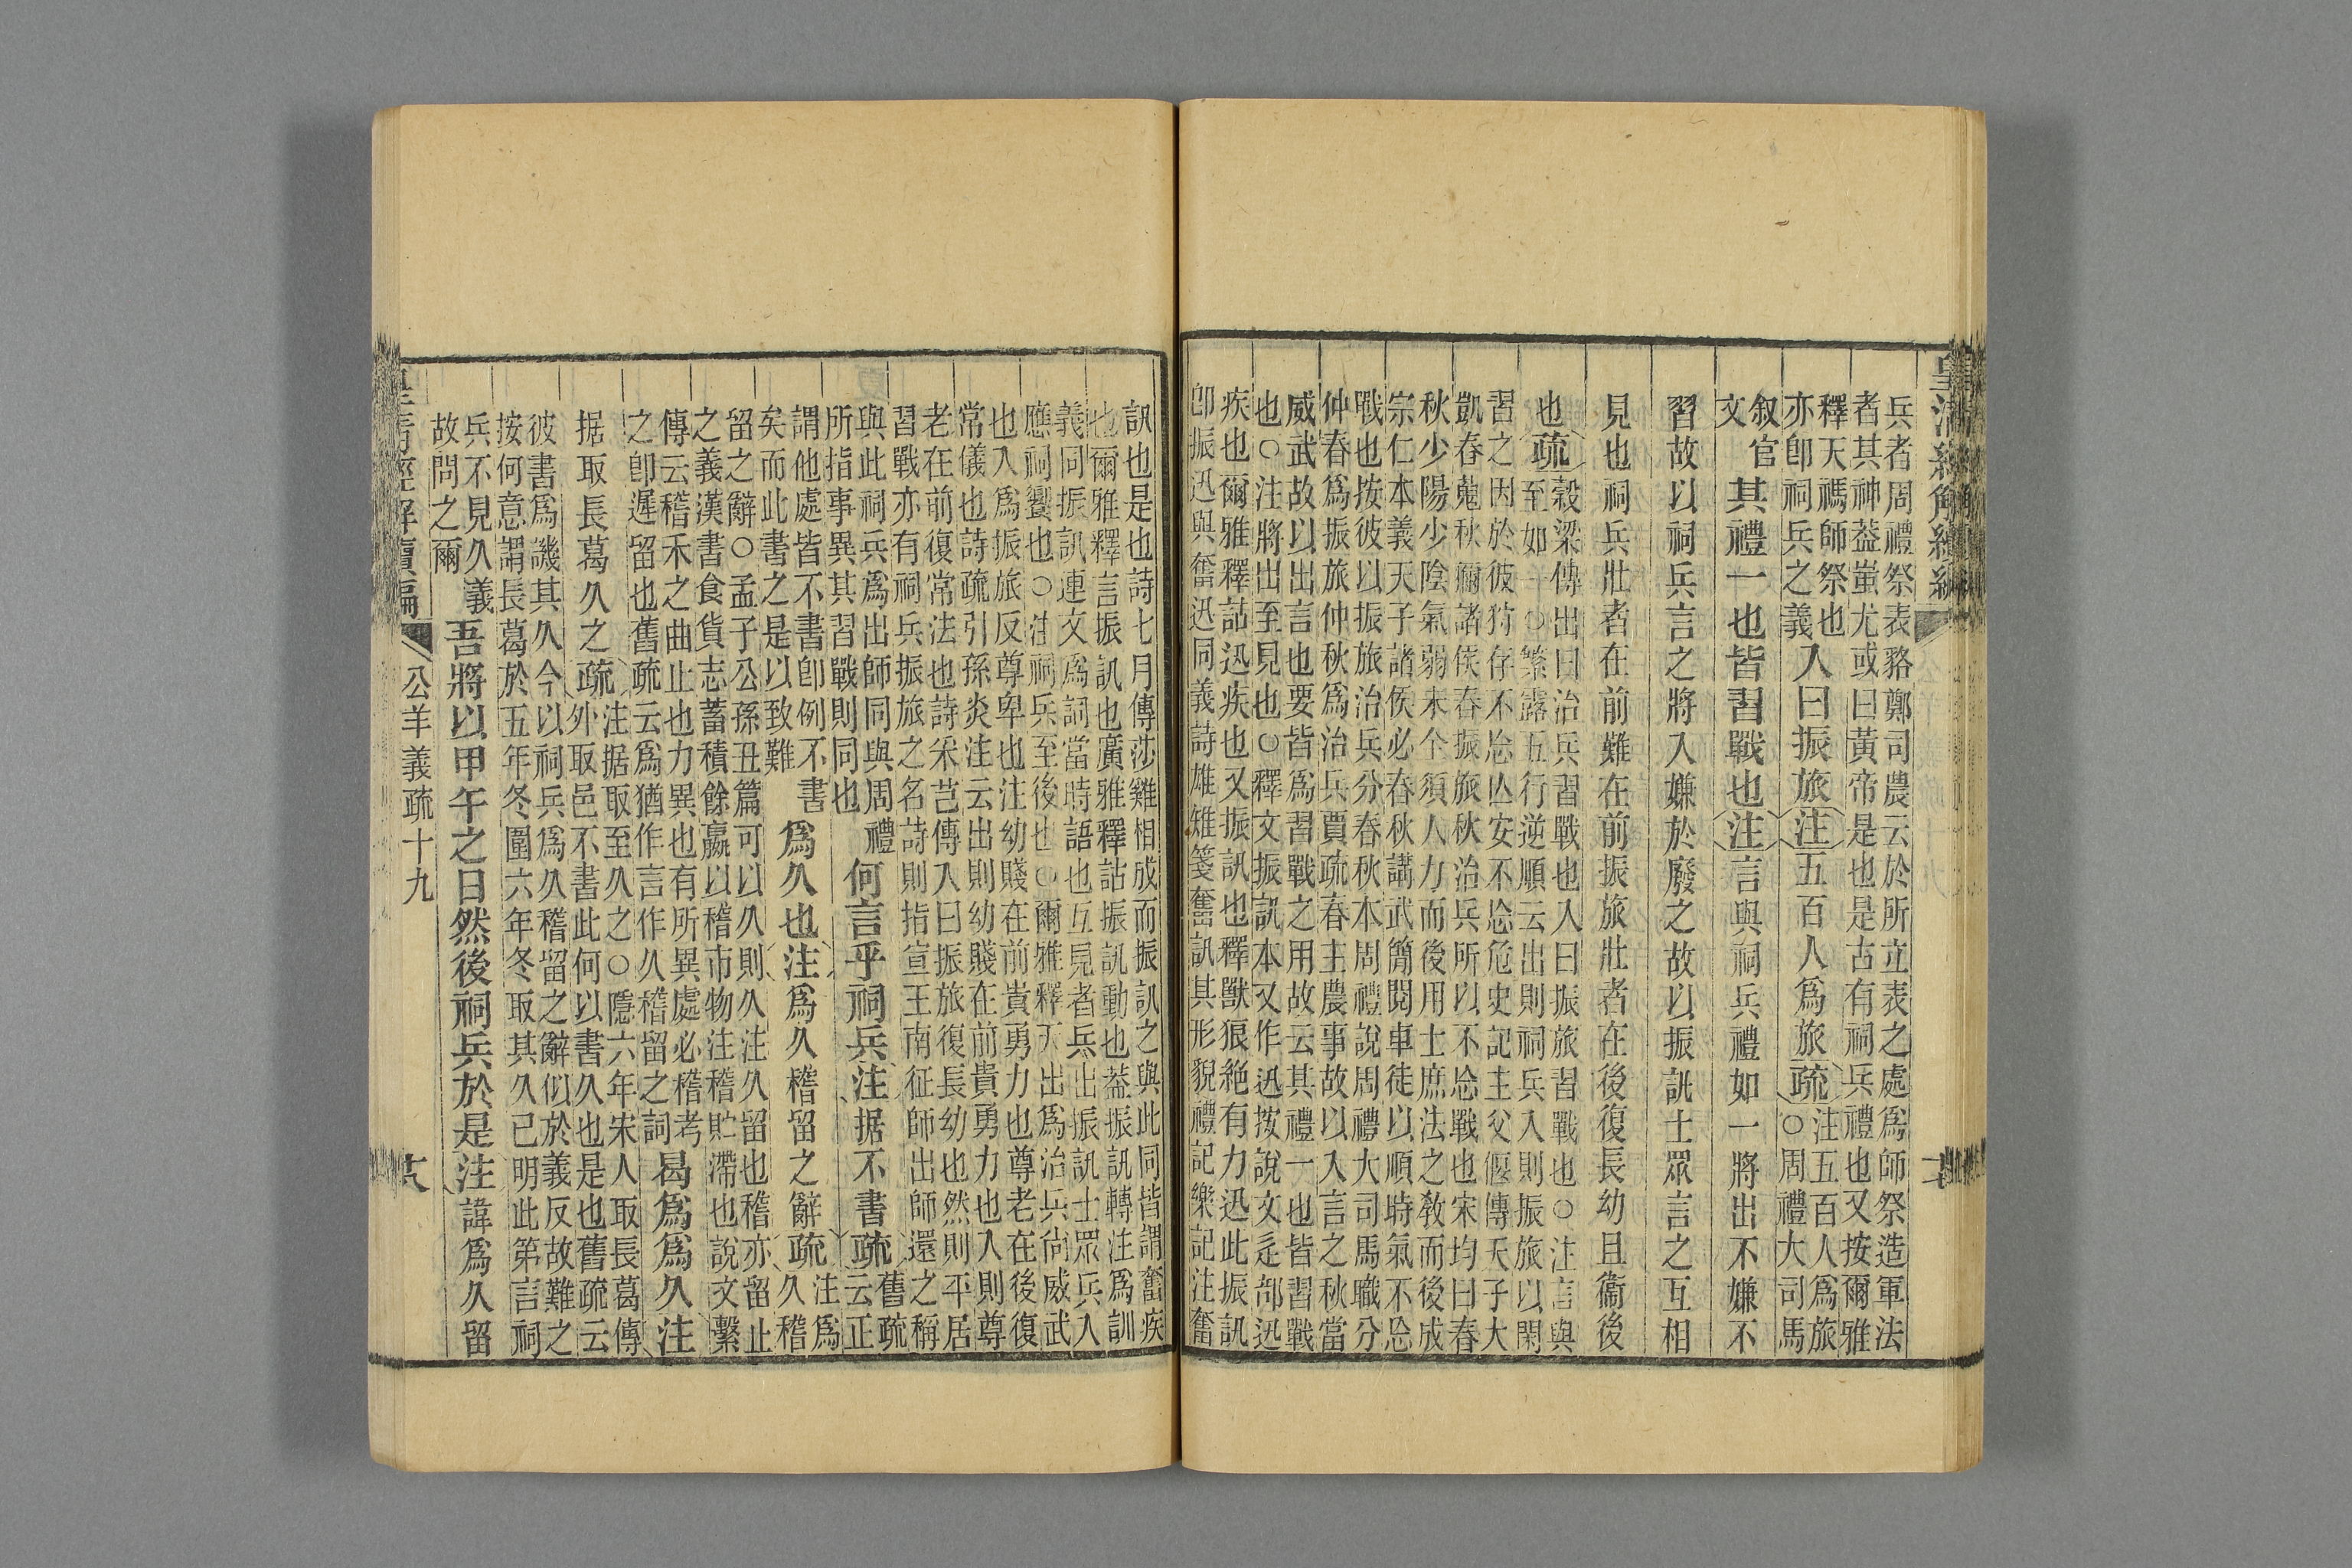 皇清經解續編
兵者周禮祭表貉鄭司農云於所立表之處爲師祭造軍法
者其神葢蚩尤或曰黃帝是也是古有祠兵禮也又按爾雅
釋天禡師祭也
亦卽祠兵之義
入曰振旅注五百人爲旅疏
注五百人爲旅
○周禮大司馬
叙官
文
其禮一也皆習戰也注言與祠兵禮如一將出不嫌不
習故以祠兵言之將入嫌於廢之故以振訊士眾言之互相
見也祠兵壯者在前難在前振旅壯者在後復長幼且衞後
也疏
穀梁傳出曰治兵習戰也入曰振旅習戰也○注言與
至如一○繁露五行逆順云出則祠兵入則振旅以閑
習之因於彼狩存不忘亾安不忘危史記主父偃傳天子大
凱春蒐秋獮諸侯春振旅秋治兵所以不忘戰也宋均曰春
秋少陽少陰氣弱未全須人力而後用士庶法之教而後成
宗仁本義天子諸侯必春秋講武簡閱車徒以順時氣不忘
戰也按彼以振旅治兵分春秋本周禮說周禮大司馬職分
仲春爲振旅仲秋爲治兵賈疏春主農事故以入言之秋當
威武故以出言也要皆爲習戰之用故云其禮一也皆習戰
也○注將出至見也○釋文振訊本又作迅按說文辵部迅
疾也爾雅釋詁迅疾也又振訊也釋獸狼絶有力迅此振訊
卽振迅與奮迅同義詩雄雉箋奮訊其形貌禮記樂記注奮
訊也是也詩七月傳莎雞相成而振訊之與此同皆謂奮疾
也爾雅釋言振訊也廣雅釋詁振訊動也葢振訊轉注爲訓
義同振訊連文爲詞當時語也互見者兵出振訊士眾兵入
應祠饗也○注祠兵至後也○爾雅釋天出爲治兵尙威武
也入爲振旅反尊卑也注幼賤在前貴勇力也尊老在後復
常儀也詩疏引孫炎注云出則幼賤在前貴勇力也入則尊
老在前復常法也詩采芑傳入曰振旅復長幼也然則平居
習戰亦有祠兵振旅之名詩則指宣王南征師出師還之稱
與此祠兵爲出師同與周禮
所指事異其習戰則同也
何言乎祠兵注据不書疏
舊疏
云正
謂他處皆不書卽例不書
矣而此書之是以致難
爲久也注爲久稽留之辭疏
注爲
久稽
留之辭○孟子公孫丑篇可以久則久注久留也稽亦留止
之義漢書食貨志蓄積餘嬴以稽市物注稽貯滯也說文繫
傳云稽禾之曲止也力異也有所異處必稽考
之卽遲留也舊疏云爲猶作言作久稽留之詞
曷爲爲久注
据取長葛久之疏
注据取至久之○隱六年宋人取長葛傳
外取邑不書此何以書久也是也舊疏云
彼書爲譏其久今以祠兵爲久稽留之辭似於義反故難之
按何意謂長葛於五年冬圍六年冬取其久已明此第言祠
兵不見久義
故問之爾
吾將以甲午之日然後祠兵於是注諱爲久留
公羊義疏十九